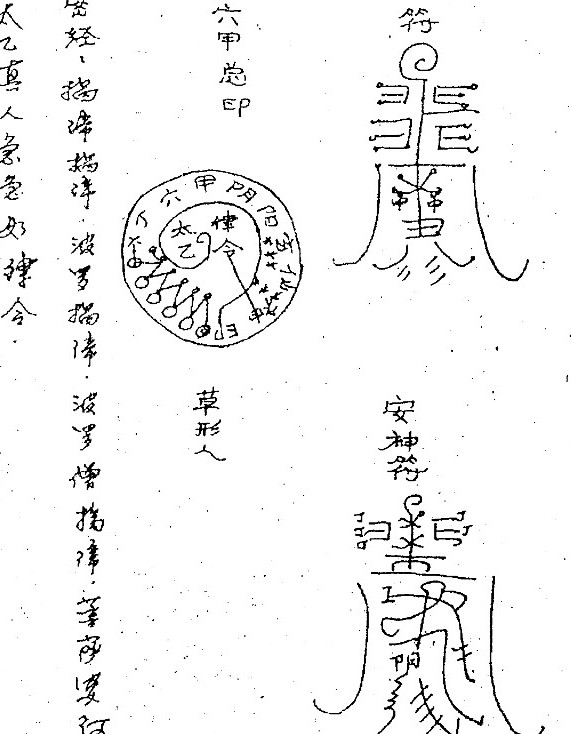 符
安神符
六甲总印
六甲阴阳
太乙
律令
印
草形人
密经、揭谛揭谛.波罗揭谛.波罗僧揭谛.菩萨婆诃
太乙真人急急如律令.